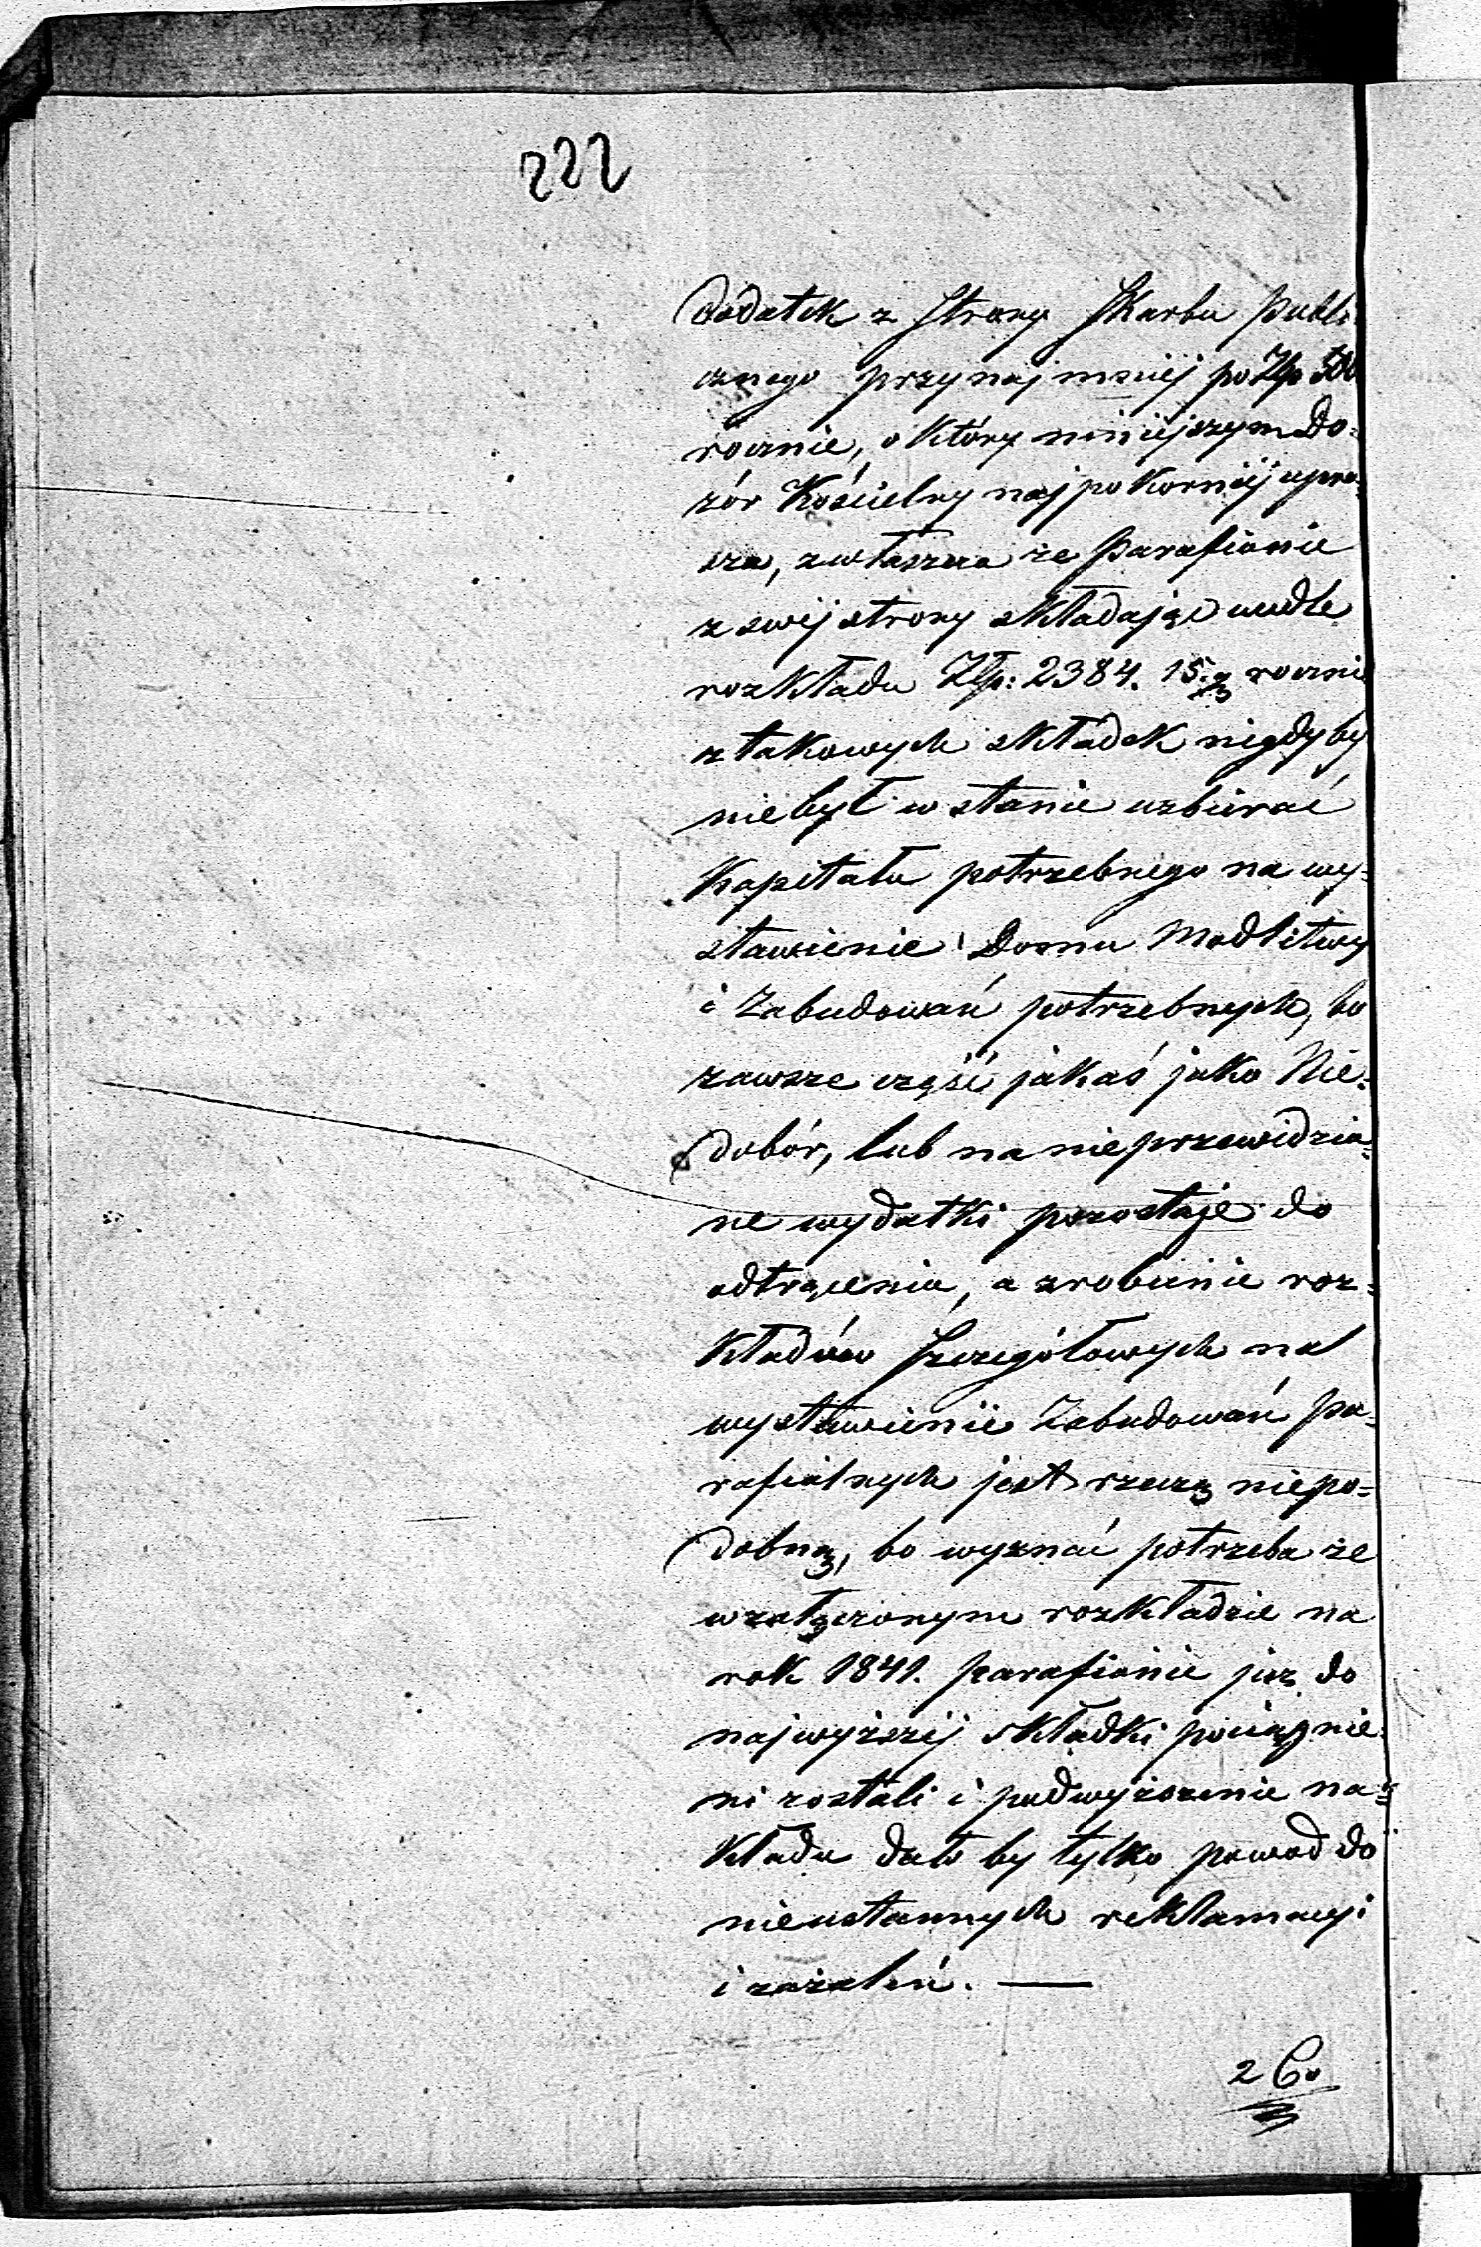 222
dodatek z Strony Skarbu Publi
cznego przynajmniej po Złp
rocznie, o który niniejszym Do=
zór Kościelny najpokorniej upra=
sza, zwłaszcza że Parafianie
z swej strony składając wedle
rozkładu Złp: 2384. 15. g rocznie
z takowych składek nigdy by
nie był w stanie uzbierać
Kapitału potrzebnego na wy=
stawienie Domu Modlitwy
i Zabudowań potrzebnych, bo
zawsze część jakaś jako Nie=
dobór, lub na nieprzewidzia=
ne wydatki pozostaje do
odtrącenia, a zrobienie roz=
kładów Szczegółowych na
wystawienie Zabudowań pa=
rafialnych jest rzeczą niepo=
dobną, bo wyznać potrzeba że
w załączonym rozkładzie na
rok 1841. parafianie już do
najwyższej składki pociągnie=
ni zostali i podwyższenie na=
kładu dało by tylko powod do
nieustannych reklamacyi
i zażaleń. —
2 Co